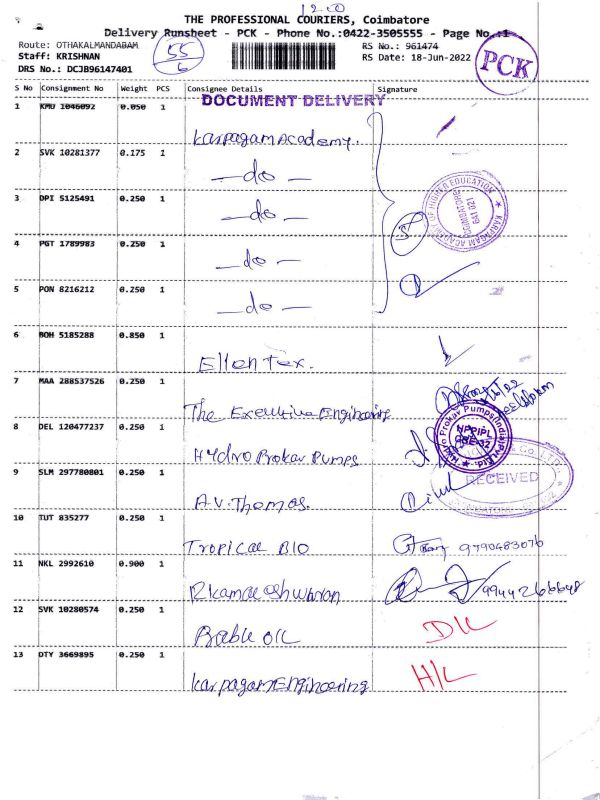 12.00
THE PROFESSIONAL COURIERS, Coimbatore
Delivery Runsheet - PCK - Phone No.:0422-3505555 - Page No.:1
Route: OTHAKALMANDABAM
Staff: KRISHNAN
DRS No.: DCJB96147401
55
6
RS No.: 961474
RS Date: 18-Jun-2022
PCK
S No Consignment No Weight PCS Consignee Details Signature
DOCUMENT DELIVERY
1 KMU 1046092 0.050 1
Karpagam Academy.
2 SVK 10281377 0.175 1
—do—
3 DPI 5125491 0.250 1
—do—
KARPAGAM ACADEMY OF HIGHER EDUCATION
COIMBATORE
641 021
4 PGT 1789983 0.250 1
—do—
5 PON 8216212 0.250 1
—do—
6 BOH 5185288 0.850 1
Ellen Tex.
7 MAA 288537526 0.250 1
The Executive Engineering
8 DEL 120477237 0.250 1
Hydro Prokav Pumps
Hydro Prokav Pumps(India)Pvt.Ltd.
HPPIPL
CBE-32
9 SLM 297780801 0.250 1
A.V. Thomas.
RECEIVED
10 TUT 835277 0.250 1
Tropical Bio 9790483076
11 NKL 2992610 0.900 1
R kamaleshwaran 9944266648
12 SVK 10280574 0.250 1
Bable oil D/L
13 DTY 3669895 0.250 1
Karpagam Engineering H/L